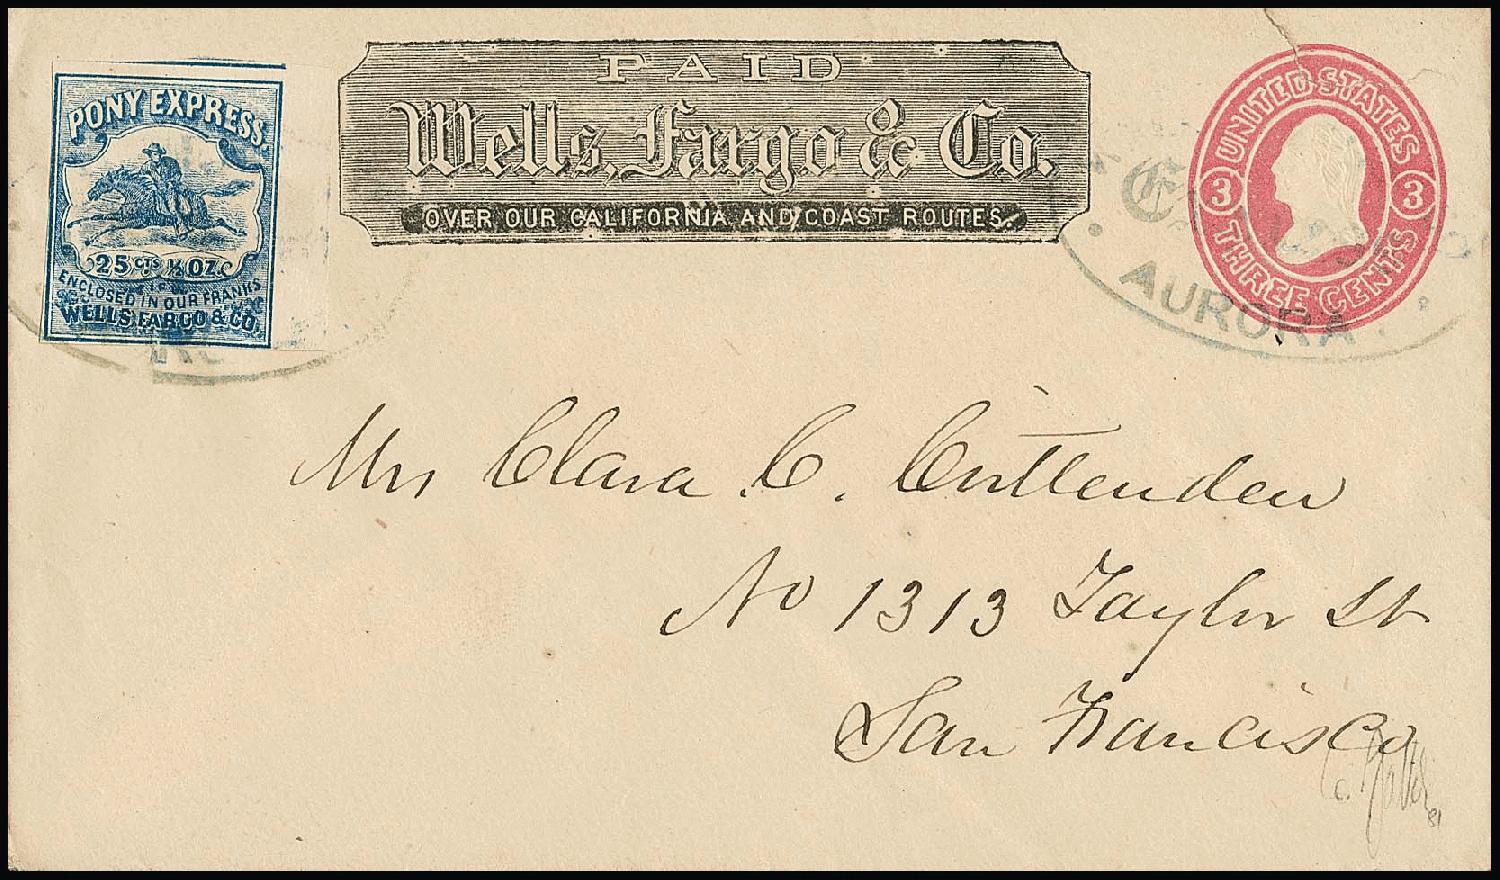 PONY EXPRESS.
25 CTS. ½ OZ.
ENCLOSED IN OUR FRANKS
WELLS, FARGO & CO.
PAID
Wells, Fargo & Co.
OVER OUR CALIFORNIA AND COAST ROUTES.
UNITED STATES
3 3
THREE CENTS
AURORA
Mrs Clara C. Crittenden
No 1313 Taylor St
San Francisco